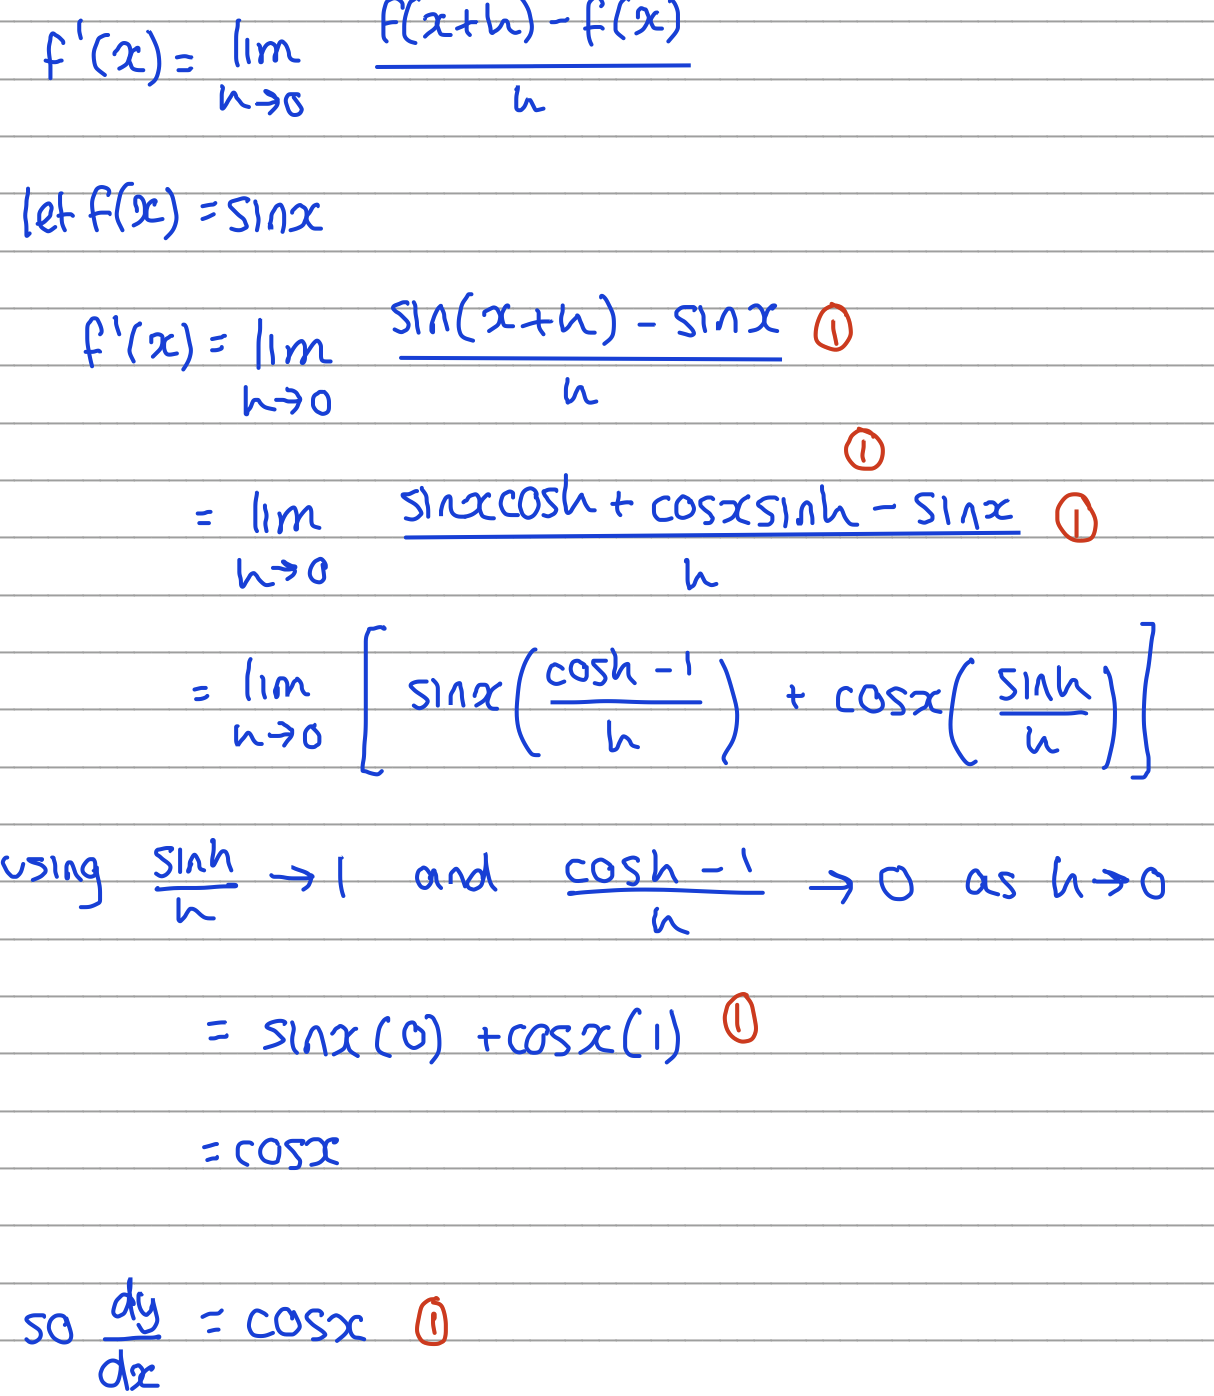 f'(x) = lim h→0 f(x+h) - f(x) / h
let f(x) = sinx
f'(x) = lim h→0 sin(x+h) - sinx / h ①
①
= lim h→0 sinxcosh + cosxsinh - sinx / h ①
= lim h→0 [ sinx( cosh - 1 / h ) + cosx( sinh / h ) ]
using sinh / h → 1 and cosh - 1 / h → 0 as h→0
= sinx(0) + cosx(1) ①
= cosx
so dy / dx = cosx ①